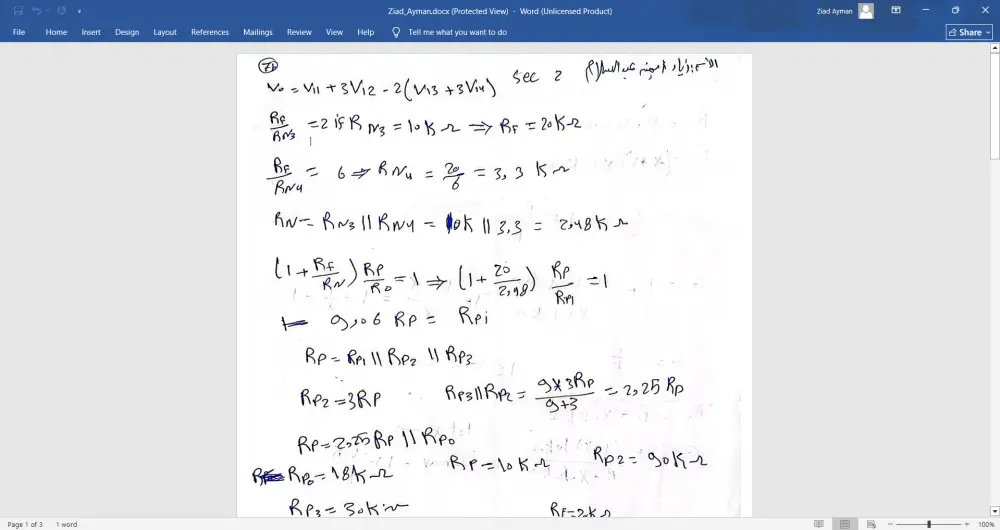 Ziad_Ayman.docx (Protected View) - Word (Unlicensed Product)
Ziad Ayman
File Home Insert Design Layout References Mailings Review View Help Tell me what you want to do
Share
7b
V₀ = V11 + 3V12 - 2(V13 + 3V14) Sec 2
RF/RN3 = 2 if RN3 = 10KΩ ⇒ RF = 20KΩ
RF/RN4 = 6 ⇒ RN4 = 20/6 = 3,3 KΩ
RN = RN3 || RN4 = 10K || 3,3 = 2,48KΩ
(1 + RF/RN) RP/R0 = 1 ⇒ (1 + 20/2,48) RP/RP1 = 1
9,06 RP = RPi
RP = RP1 || RP2 || RP3
RP2 = 3RP RP3 || RP2 = 9*3RP/9+3 = 2,25 RP
RP = 2,25RP || RP0
RP0 = 18KΩ RP = 10KΩ RP2 = 90KΩ
RP3 = 30KΩ RF = 2KΩ
Page 1 of 3 1 word
100%